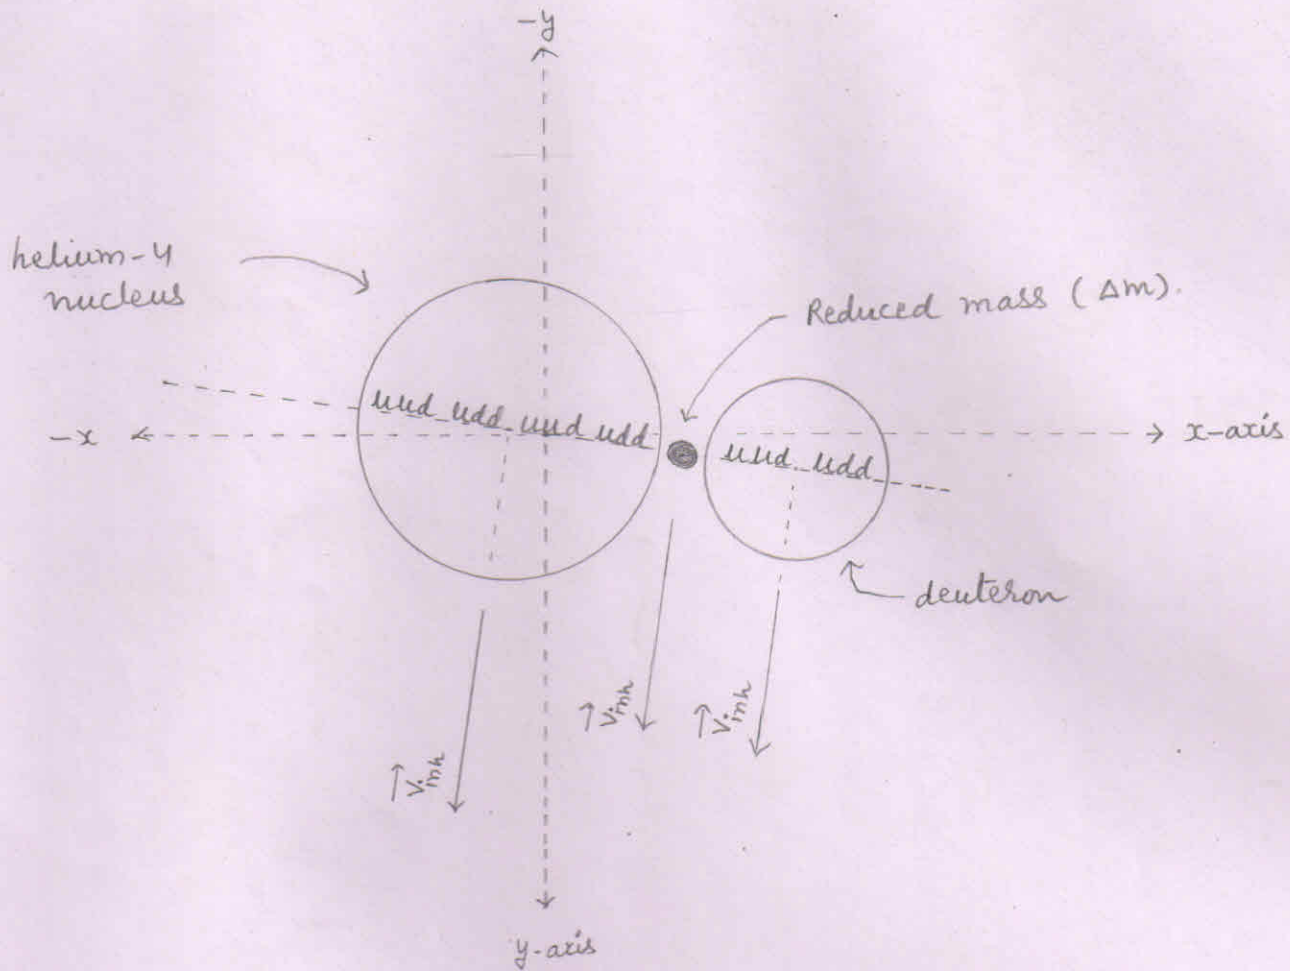 -y
helium-4
nucleus
Reduced mass (Δm).
uud udd uud udd
-x
x-axis
uud udd
deuteron
→Vinh
→Vinh
→Vinh
y-axis